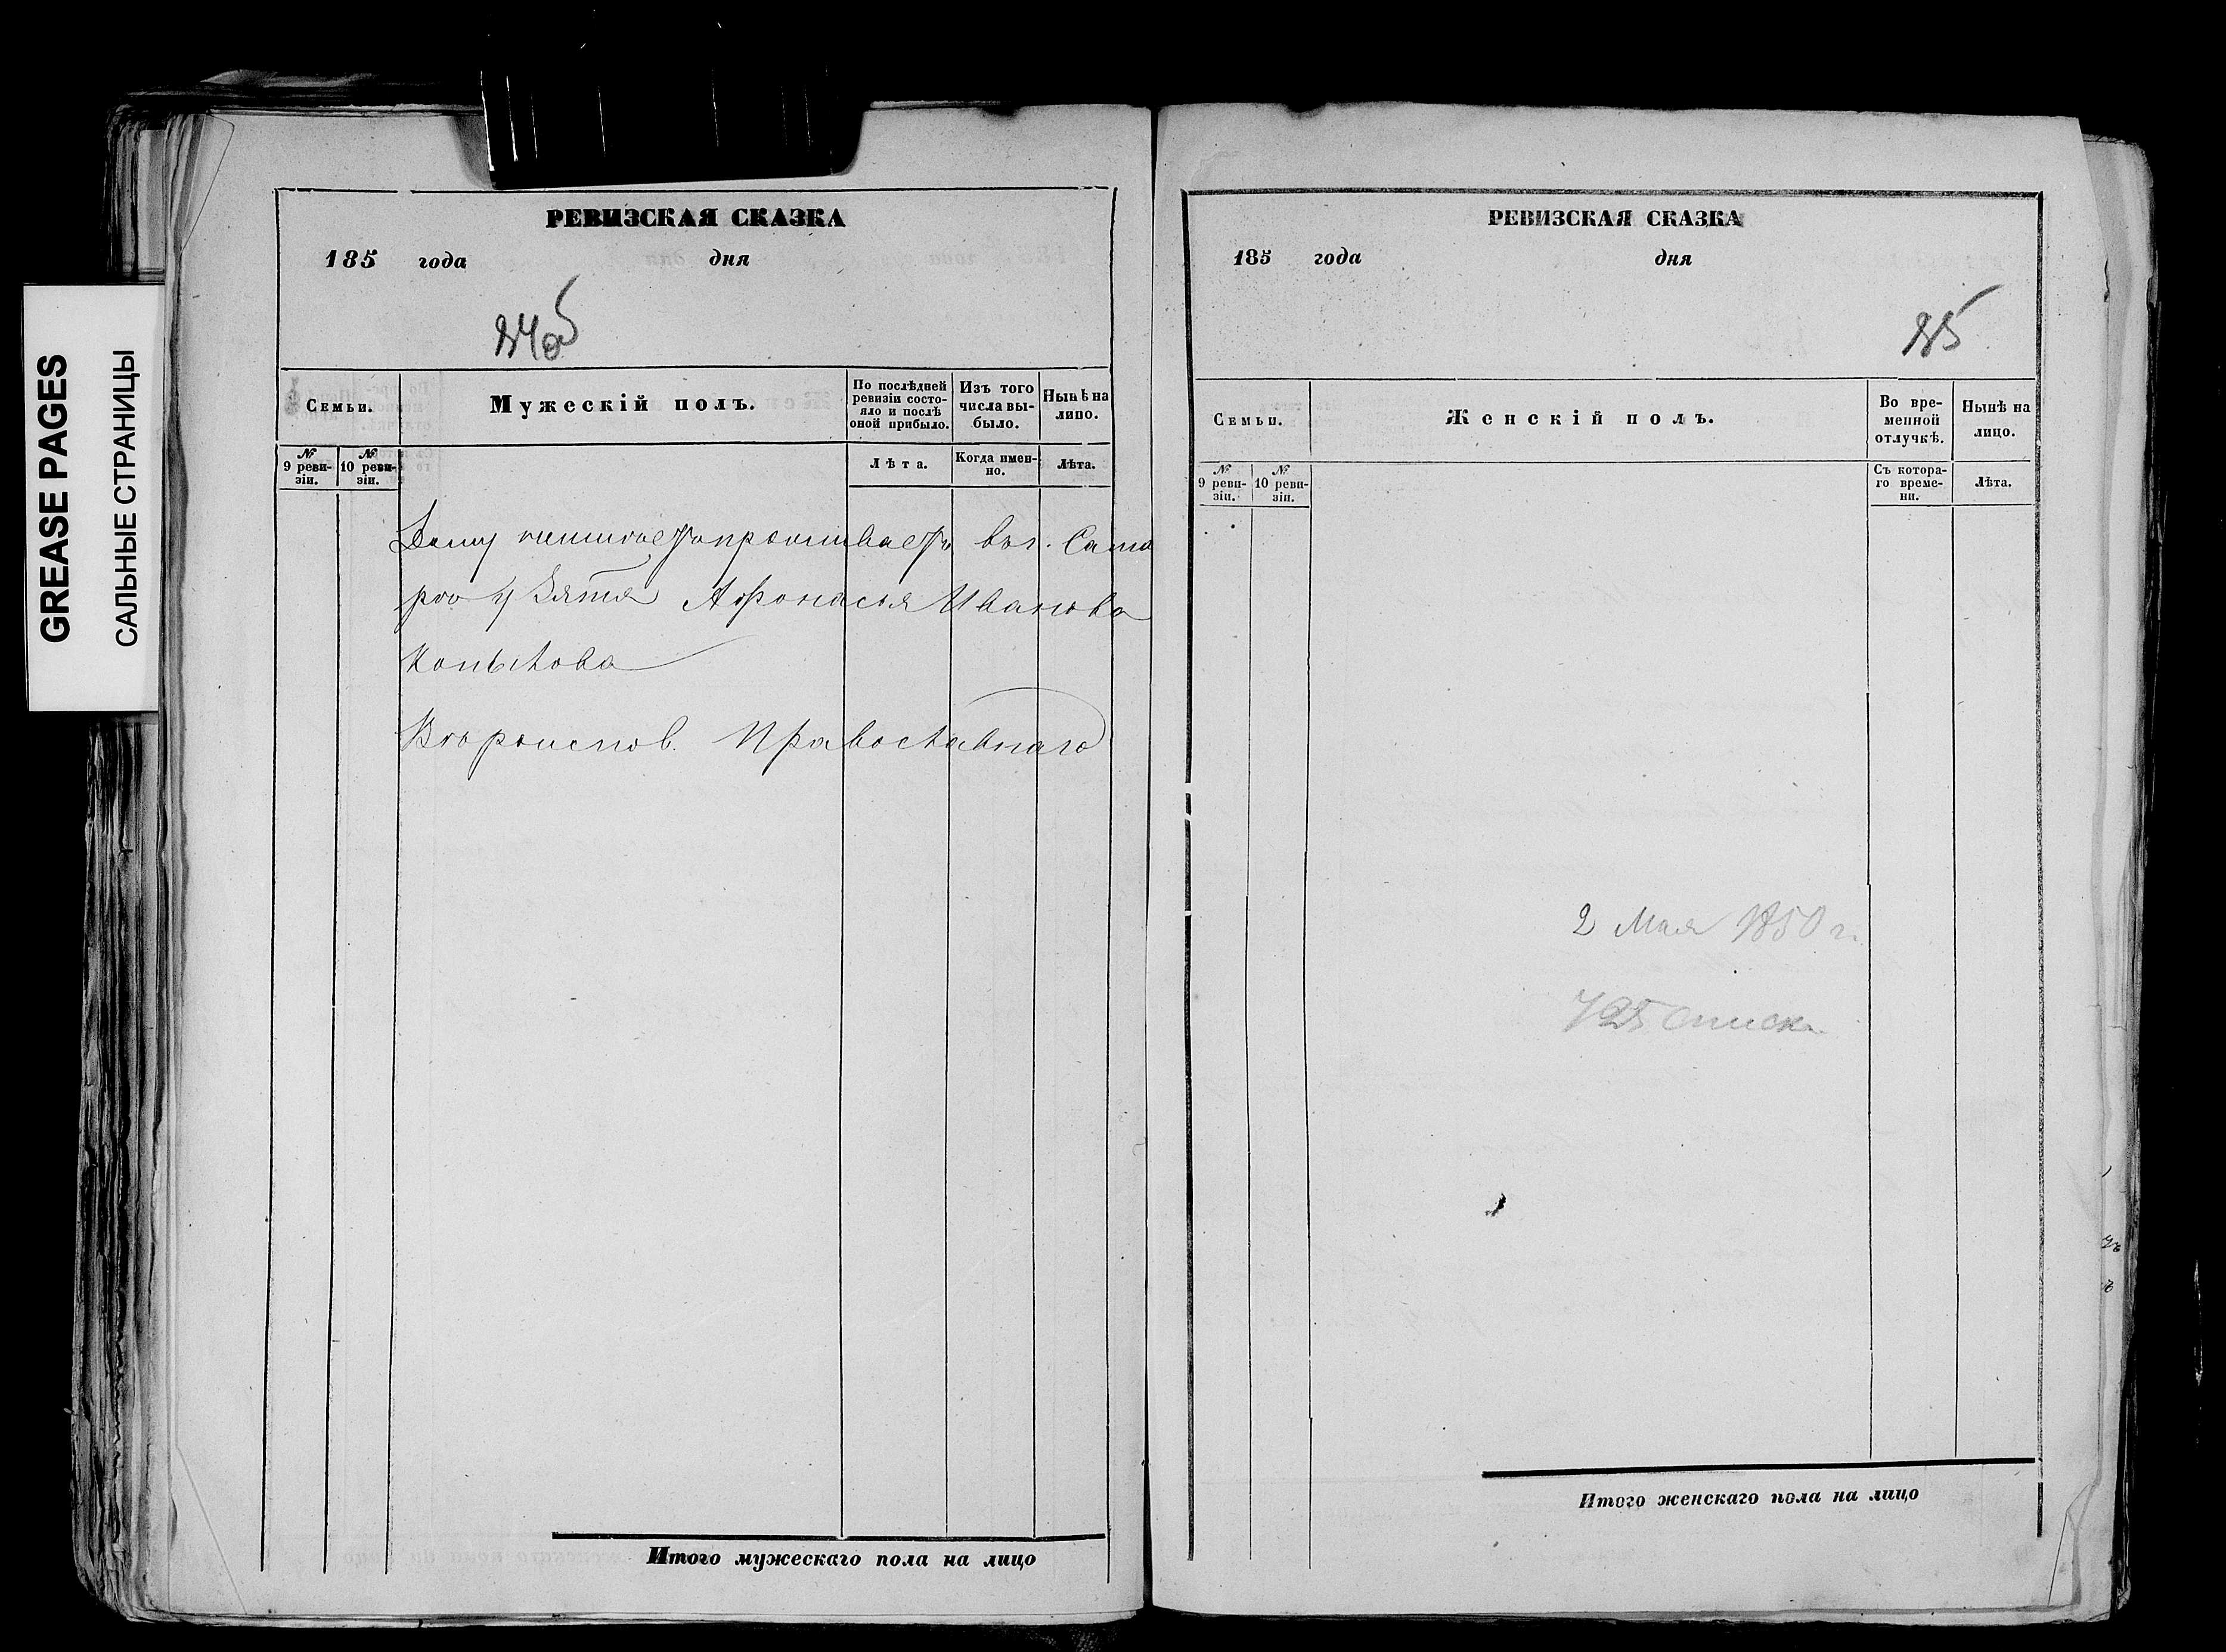 GREASE PAGES
САЛЬНЫЕ СТРАНИЦЫ
РЕВИЗСКАЯ СКАЗКА
185 года дня
84об
Семьи.
Мужескій полъ.
По послѣдней ревизіи состояло и послѣ оной прибыло.
Изъ того числа выбыло.
Нынѣ на лицо.
№ 9 ревизіи.
№ 10 ревизіи.
Лѣта.
Когда именно.
Лѣта.
Дому неимѣетъ проживаетъ въ г. Сама
рѣ у Зятя Афонасья Иванова
Копылова
Вѣроиспов. Православнаго
Итого мужескаго пола на лицо
РЕВИЗСКАЯ СКАЗКА
185 года дня
85
Семьи.
Женскій полъ.
Во временной отлучкѣ.
Нынѣ на лицо.
№ 9 ревизіи.
№ 10 ревизіи.
Съ котораго времени.
Лѣта.
2 Мая 1850 г.
Итого женскаго пола на лицо